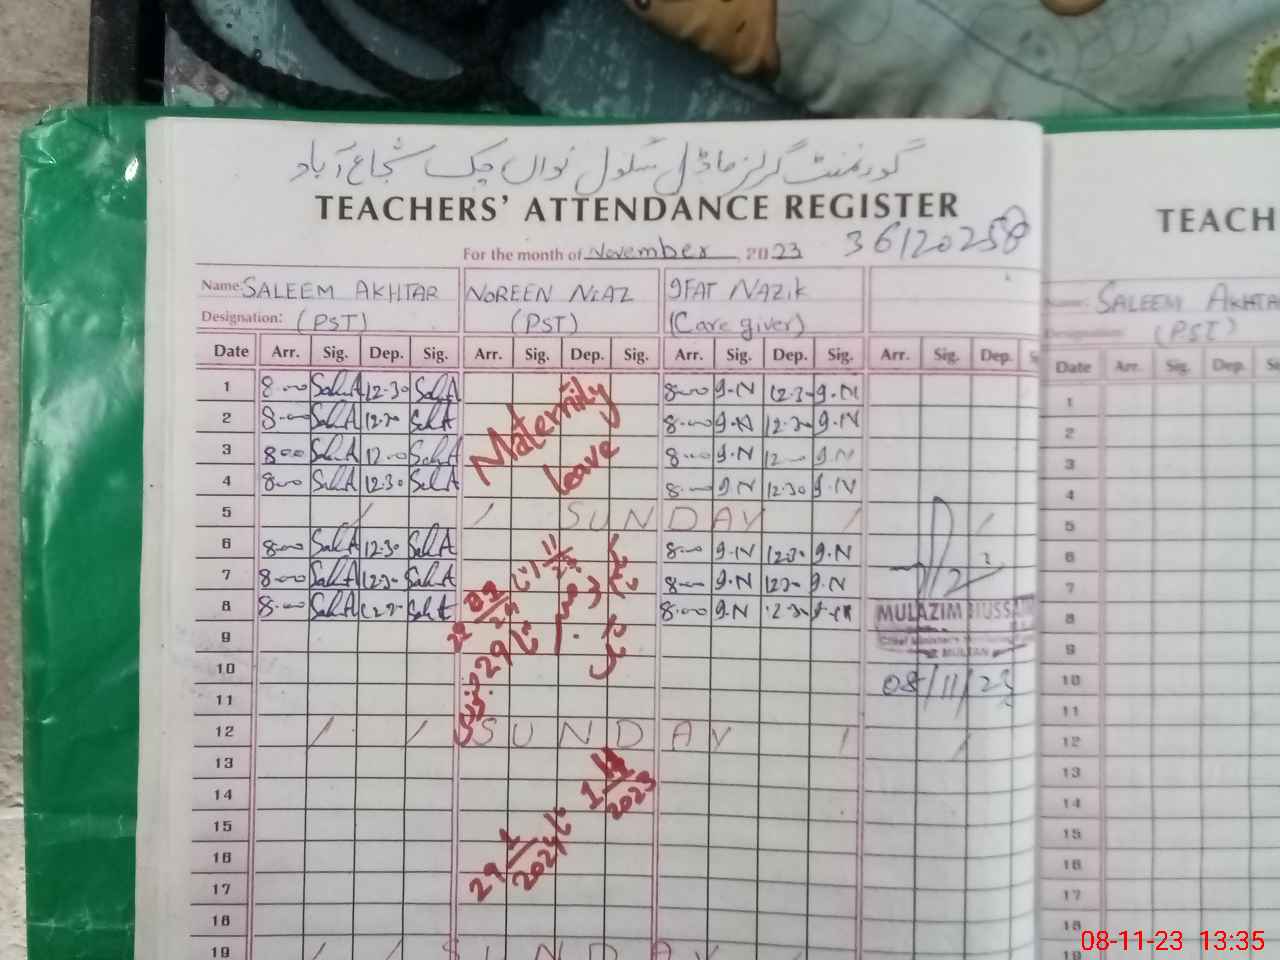 گورنمنٹ گرلز ماڈل سکول نواں چک شجاع آباد
TEACHERS' ATTENDANCE REGISTER
For the month of November 2023 36120258
Name: SALEEM AKHTAR NOREEN NIAZ IFAT NAZIK
Designation: (PST) (PST) (Care giver)
Date Arr. Sig. Dep. Sig. Arr. Sig. Dep. Sig. Arr. Sig. Dep. Sig. Arr. Sig. Dep.
1 8-00 12-30 8-00 I.N 12-30 I.N
2 8-00 12-30 8-00 I.N 12-30 I.N
Maternity leave
3 8-00 12-00 8-00 I.N 12-00 I.N
4 8-00 12.30 8-00 I.N 12-30 I.N
5 SUNDAY
6 8-00 12.30 8-00 I.N 12-30 I.N
7 8-00 12-30 8-00 I.N 12-30 I.N
8 8-00 12-30 8-00 I.N 12-30 MULAZIM HUSSAIN
9 MULTAN
10 08/11/23
11
12 SUNDAY
13
14 1 11/2023
15
16 29 1/2024
17
18
19 SUNDAY
TEACH
Name: SALEEM AKHTA
(PST)
Date Arr. Sig. Dep.
1
2
3
4
5
6
7
8
9
10
11
12
13
14
15
16
17
18
19
08-11-23 13:35